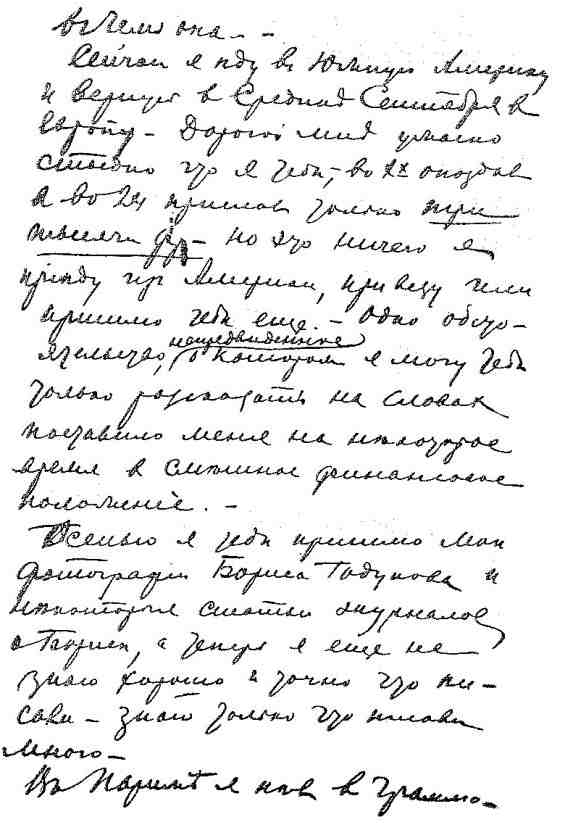 въ чемъ она. -
Сейчас я иду въ Южную Америку
и вернусь в Средине Сентября в
Европу - Дорогой мой ужасно
стыдно что я тебе, - во 1х опоздав
а во 2х прислав только три
тысячи фр - но это ничего я
прииду изъ Америки, привезу или
пришлю тебе еще. - Одно обсто-
ятельство, непредвиденное о котором я могу тебе
только рассказать на словах
поставило меня на некоторое
время в смешное финансовое
положенiе. -
Осенью я тебе пришлю мои
фотографiи Бориса Годунова и
некоторые статьи журналов
о Борисе, а теперь я еще не
знаю хорошо и точно что пи-
сали - знаю только что писали
много -
Въ Парижѣ я пѣл в Граммо-